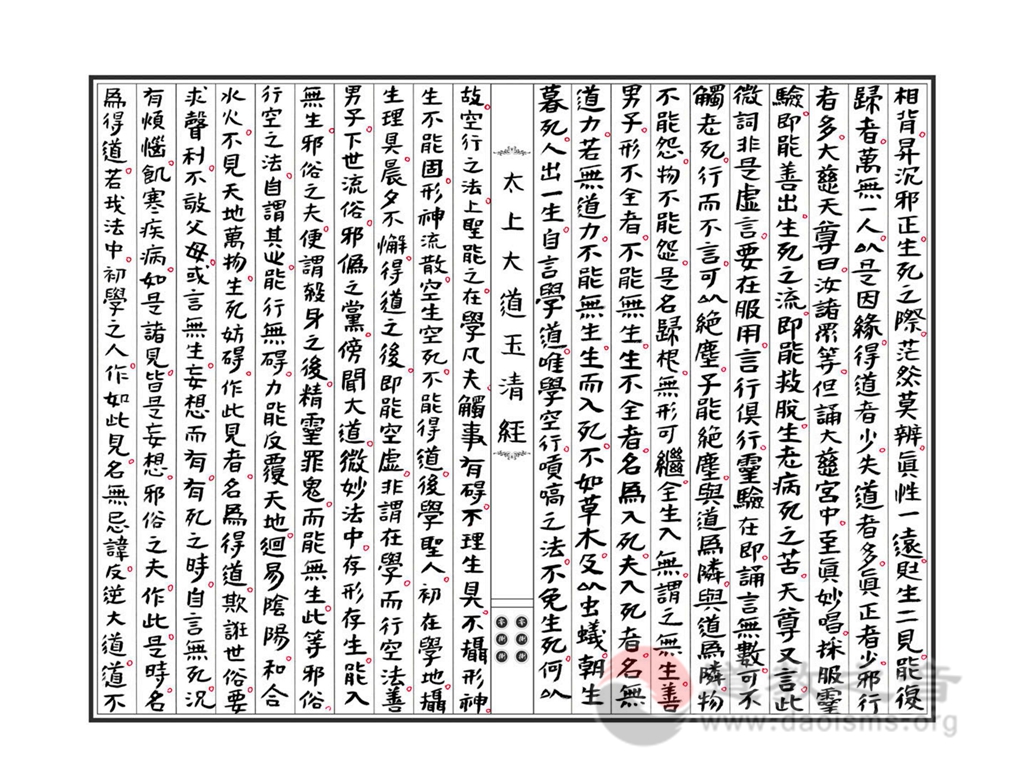 相背昇沉邪正生死之際茫然莫辨眞性一遠起生二見能復
歸者萬無一人以是因緣得道者少失道者多眞正者少邪行
者多大慈天尊曰汝諸眾等但誦大慈宮中至眞妙唱採服靈
驗即能善出生死之流即能救脫生老病死之苦天尊又言此
微詞非是虛言要在服用言行俱行靈驗在即誦言無數可不
觸老死行而不言可以絶塵子能絶塵與道爲隣與道爲隣物
不能怨物不能怨是名歸根無形可繼全生入無謂之無生善
男子形不全者不能無生生不全者名爲入死夫入死者名無
道力若無道力不能無生生而入死不如草木及以虫蟻朝生
暮死人出一生自言學道唯學空行嘖嗃之法不免生死何以
太上大道玉清經
故空行之法上聖能之在學凡夫觸事有碍不理生具不攝形神
生不能固形神流散空生空死不能得道後學聖人初在學地攝
生理具晨夕不懈得道之後即能空虛非謂在學而行空法善
男子下世流俗邪僞之黨傍聞大道微妙法中存形存生能入
無生邪俗之夫便謂殺身之後精靈罪鬼而能無生此等邪俗
行空之法自謂其𠯁能行無碍力能反覆天地迴易陰陽和合
水火不見天地萬物生死妨碍作此見者名爲得道欺誑世俗要
求聲利不敬父母或言無生妄想而有有死之時自言無死況
有煩惱飢寒疾病如是諸見皆是妄想邪俗之夫作此是時名
爲得道若我法中初學之人作如此見名無忌諱反逆大道道不
道教之音
www.daoisms.org